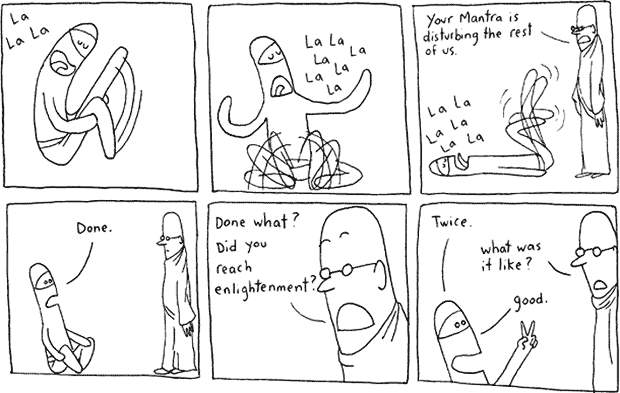 La
La La
La La
La La
La La
La
Your Mantra is
disturbing the rest
of us.
La La
La La
La La
Done.
Done what?
Did you
reach
enlightenment?
Twice.
what was
it like?
good.